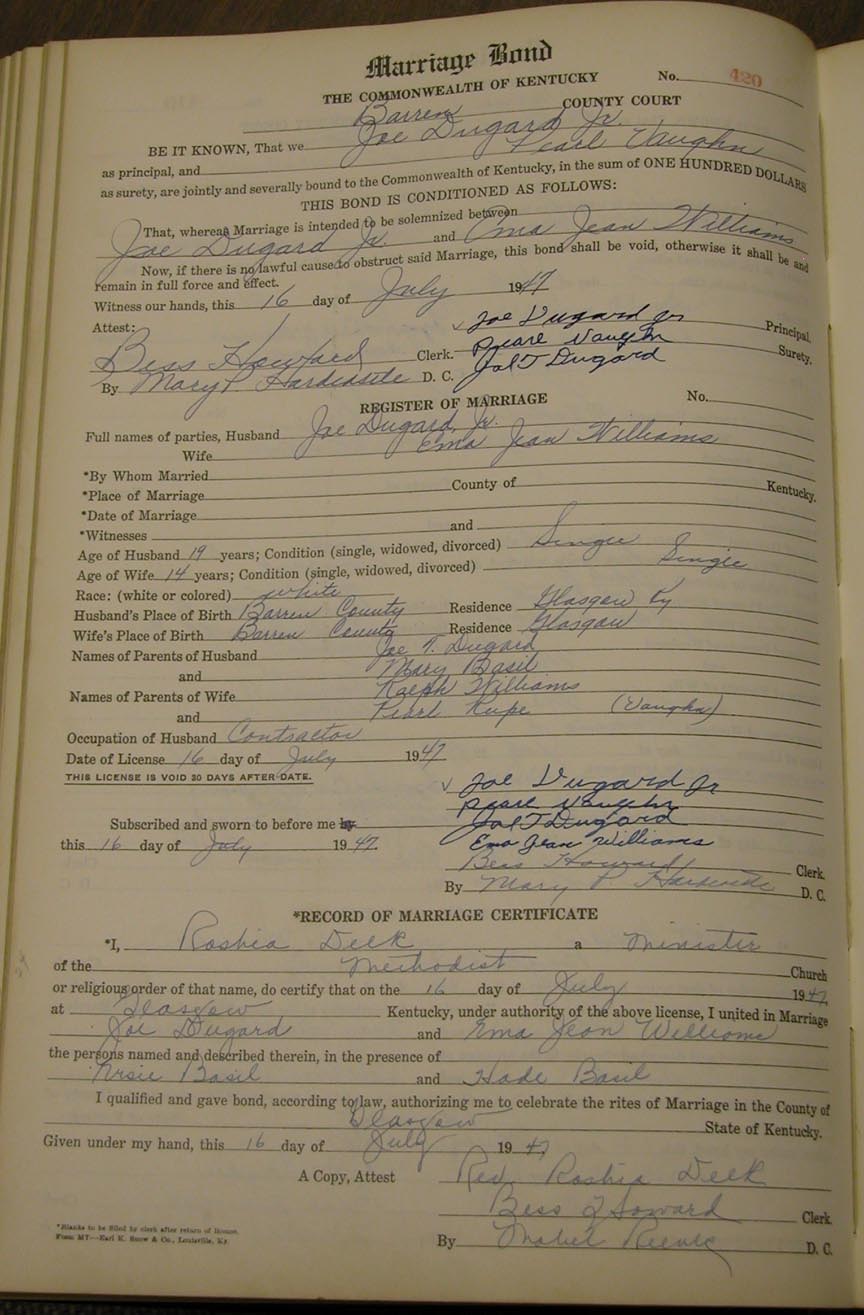 Marriage Bond
No. 420
THE COMMONWEALTH OF KENTUCKY
Barren COUNTY COURT
BE IT KNOWN, That we Joe Dugard Jr.
as principal, and Pearl Vaughn
as surety, are jointly and severally bound to the Commonwealth of Kentucky, in the sum of ONE HUNDRED DOLLARS
THIS BOND IS CONDITIONED AS FOLLOWS:
That, whereas Marriage is intended to be solemnized between
Joe Dugard Jr. and Ema Jean Williams
Now, if there is no lawful cause to obstruct said Marriage, this bond shall be void, otherwise it shall be and
remain in full force and effect.
Witness our hands, this 16 day of July 1947
Attest: Joe Dugard Jr Principal.
Bess Howard Clerk. Pearl Vaughn Surety.
By Mary P. D. C. Joe T Dugard
REGISTER OF MARRIAGE No.
Full names of parties, Husband Joe Dugard, Jr.
Wife Ema Jean Williams
*By Whom Married
*Place of Marriage County of Kentucky.
*Date of Marriage
*Witnesses and
Age of Husband 19 years; Condition (single, widowed, divorced) Single
Age of Wife 14 years; Condition (single, widowed, divorced) Single
Race: (white or colored) white
Husband's Place of Birth Barren County Residence Glasgow Ky
Wife's Place of Birth Barren County Residence Glasgow
Names of Parents of Husband Joe T. Dugard
and Mary Basil
Names of Parents of Wife Ralph Williams
and Pearl Rupe (Vaughn)
Occupation of Husband Contractor
Date of License 16 day of July 1947
THIS LICENSE IS VOID 30 DAYS AFTER DATE.
Joe Dugard Jr
Pearl Vaughn
Subscribed and sworn to before me by Joe T Dugard
this 16 day of July 1947. Ema Jean Williams
Bess Howard Clerk.
By Mary P. D. C.
*RECORD OF MARRIAGE CERTIFICATE
*I, Roshia Deck a Minister
of the Methodist Church
or religious order of that name, do certify that on the 16 day of July 1947
at Glasgow Kentucky, under authority of the above license, I united in Marriage
Joe Dugard and Ema Jean Williams
the persons named and described therein, in the presence of
Basil and Hade Basil
I qualified and gave bond, according to law, authorizing me to celebrate the rites of Marriage in the County of
Glasgow State of Kentucky.
Given under my hand, this 16 day of July 1947
A Copy, Attest Rev. Roshia Deck
Bess Howard Clerk.
By Mabel D. C.
*Blanks to be filled by clerk after return of license.
Form MT—Earl K. Snow & Co., Louisville, Ky.